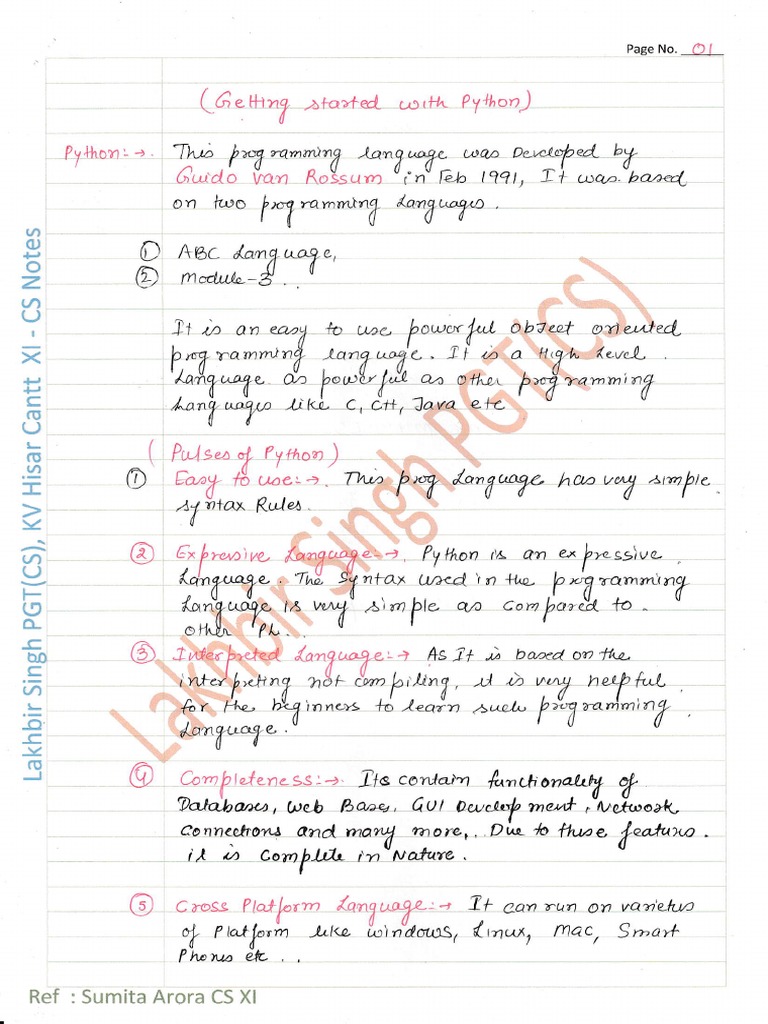 Page No. 01
(Getting started with Python)
Python:→. This programming language was Developed by
Guido van Rossum in Feb 1991, It was based
on two programming Languages.
① ABC Language,
② Module-3 . .
It is an easy to use powerful Object oriented
programming language. It is a High Level
Language as powerful as other programming
Languages like C, C++, Java etc
(Pulses of Python)
① Easy to use:→. This prog Language has very simple
syntax Rules.
② Expressive Language:→. Python is an expressive
Language. The syntax used in the programming
Language is very simple as compared to.
other PL...
③ Interpreted Language:→ As It is based on the
interpreting not compiling, it is very helpful
for the beginners to learn such programming
Language.
④ Completeness:→. Its contain functionality of
Databases, Web Base, GUI Development, Network
connections and many more,. Due to these features.
it is complete in Nature.
⑤ Cross Platform Language:→ It can run on varietus
of Platform like windows, Linux, Mac, Smart
Phones etc . .
Lakhbir Singh PGT(CS), KV Hisar Cantt XI - CS Notes
Lakhbir Singh PGT(CS)
Ref : Sumita Arora CS XI